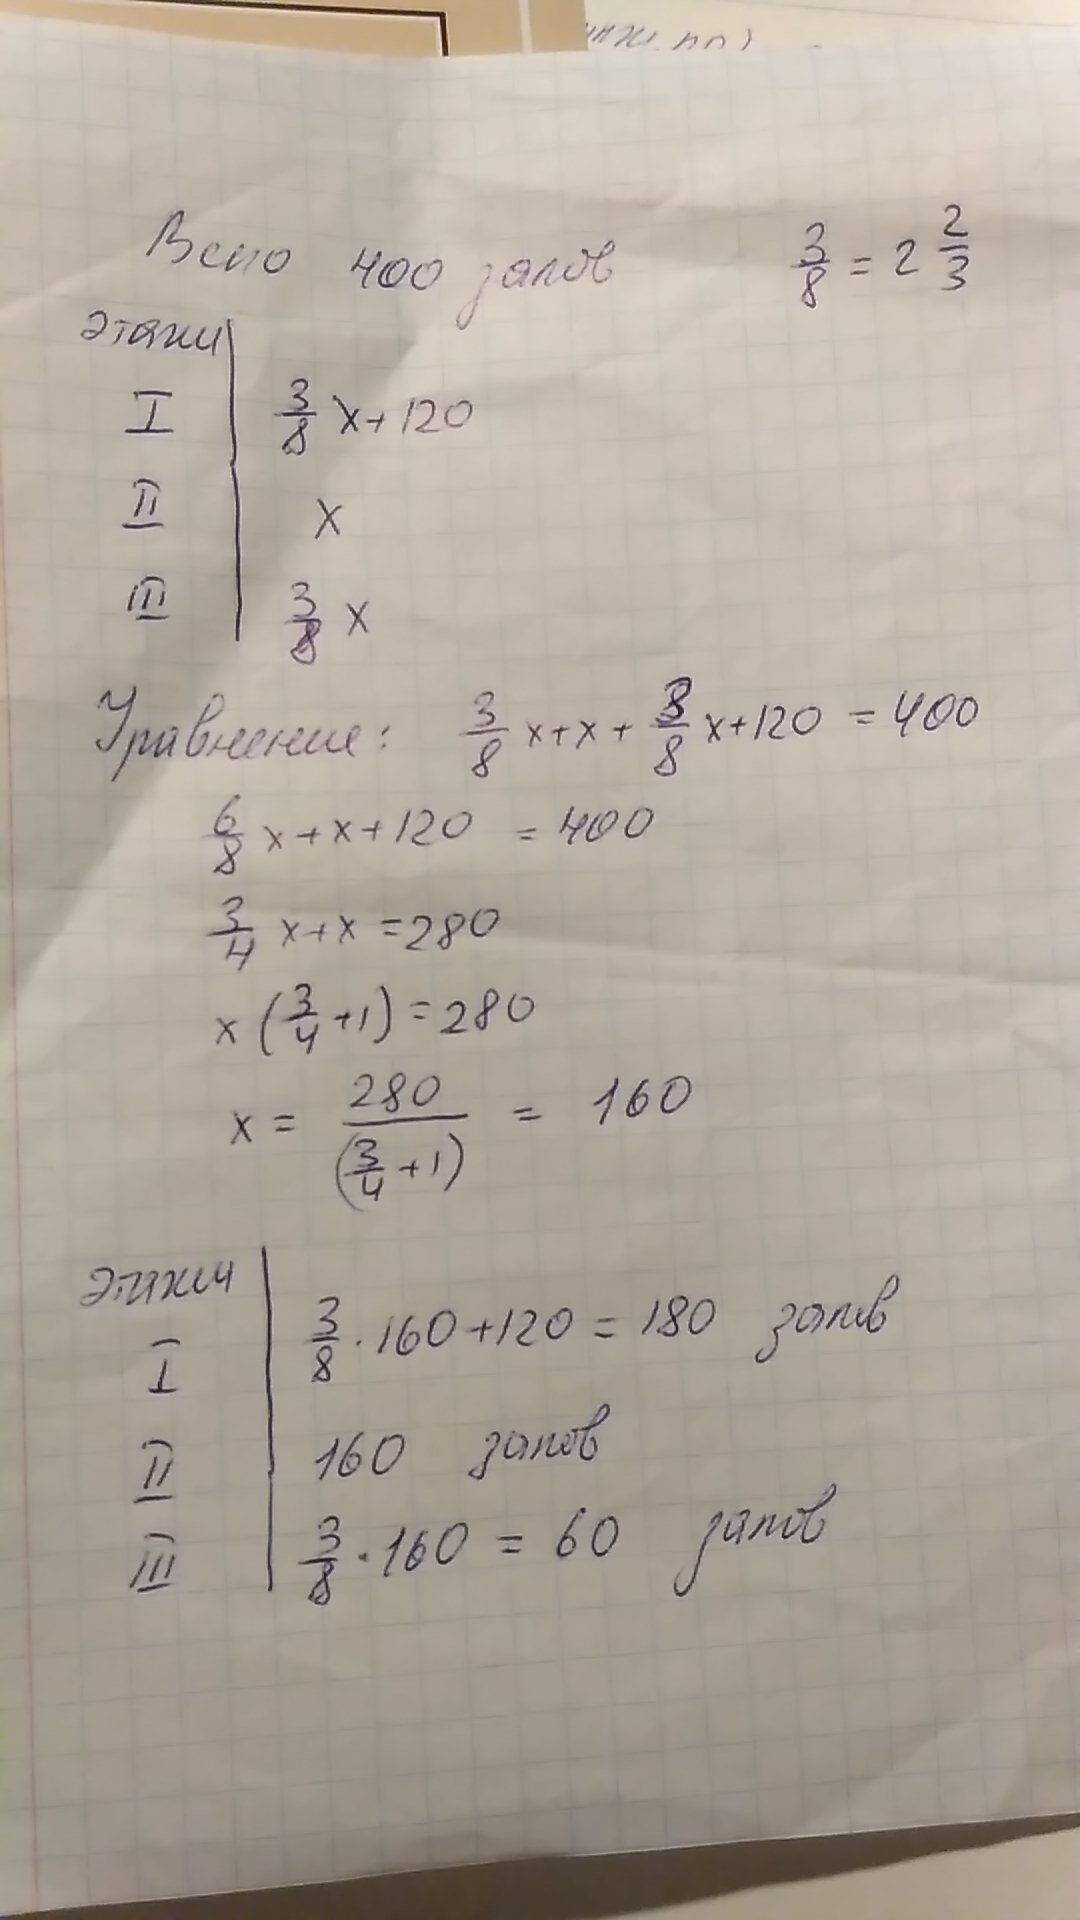 Всего 400 залов 3/8 = 2 2/3
этажи
I 3/8 x + 120
II x
III 3/8 x
Уравнение: 3/8 x + x + 3/8 x + 120 = 400
6/8 x + x + 120 = 400
3/4 x + x = 280
x (3/4 + 1) = 280
x = 280/(3/4 + 1) = 160
этажи
I 3/8 · 160 + 120 = 180 залов
II 160 залов
III 3/8 · 160 = 60 залов